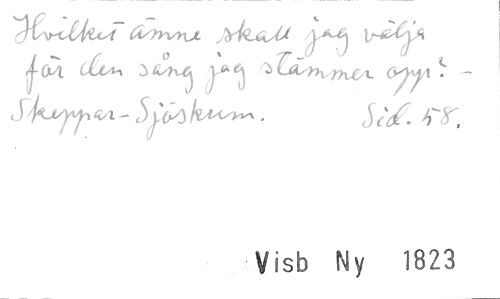 Hvilket ämne skall jag välja
för den sång jag stämmer opp? -
Skeppar-Sjöskum. Sid. 58.
Visb Ny 1823